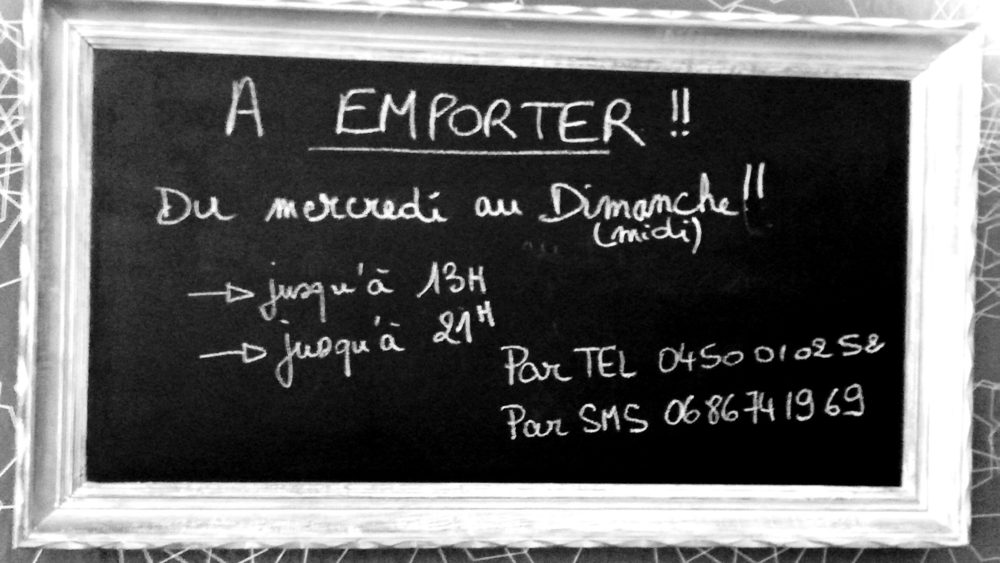 A EMPORTER !!
Du mercredi au Dimanche !!
(midi)
→ jusqu'à 13H
→ jusqu'à 21H
Par TEL 0450 01 02 52
Par SMS 0686741969